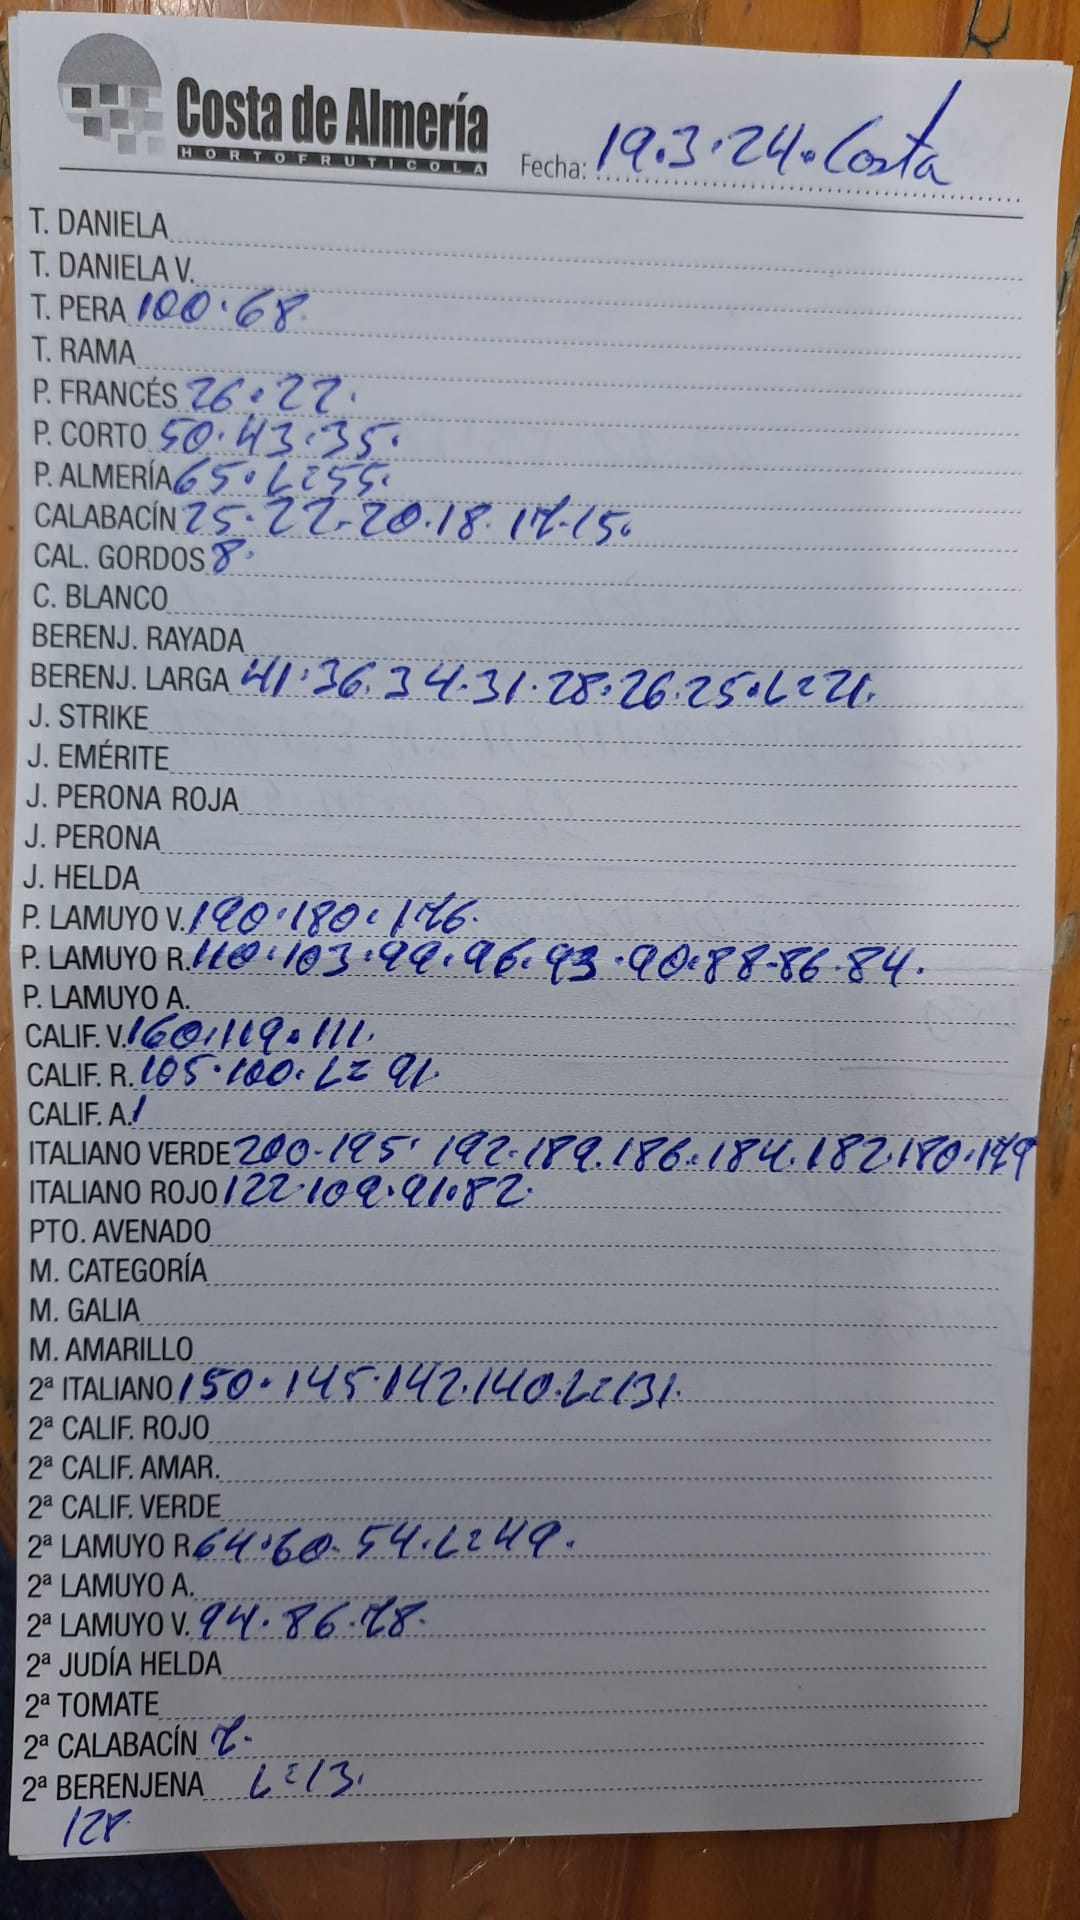 Costa de Almería
HORTOFRUTICOLA
Fecha: 19.3.24. Costa
T. DANIELA
T. DANIELA V.
T. PERA 100.68
T. RAMA
P. FRANCÉS 26.22.
P. CORTO 50.43.35.
P. ALMERÍA 65.L=55.
CALABACÍN 25.22.20.18.17.15.
CAL. GORDOS 8.
C. BLANCO
BERENJ. RAYADA
BERENJ. LARGA 41.36.34.31.28.26.25.L=21.
J. STRIKE
J. EMÉRITE
J. PERONA ROJA
J. PERONA
J. HELDA
P. LAMUYO V. 190.180.176.
P. LAMUYO R. 110.103.99.96.93.90.88.86.84.
P. LAMUYO A.
CALIF. V. 160.119.111.
CALIF. R. 105.100.L=91.
CALIF. A. 1
ITALIANO VERDE 200.195.192.189.186.184.182.180.179
ITALIANO ROJO 122.109.91.82.
PTO. AVENADO
M. CATEGORÍA
M. GALIA
M. AMARILLO
2ª ITALIANO 150.145.142.140.L=131.
2ª CALIF. ROJO
2ª CALIF. AMAR.
2ª CALIF. VERDE
2ª LAMUYO R. 64.60.54.L=49.
2ª LAMUYO A.
2ª LAMUYO V. 94.86.78.
2ª JUDÍA HELDA
2ª TOMATE
2ª CALABACÍN 7.
2ª BERENJENA L=13.
128.